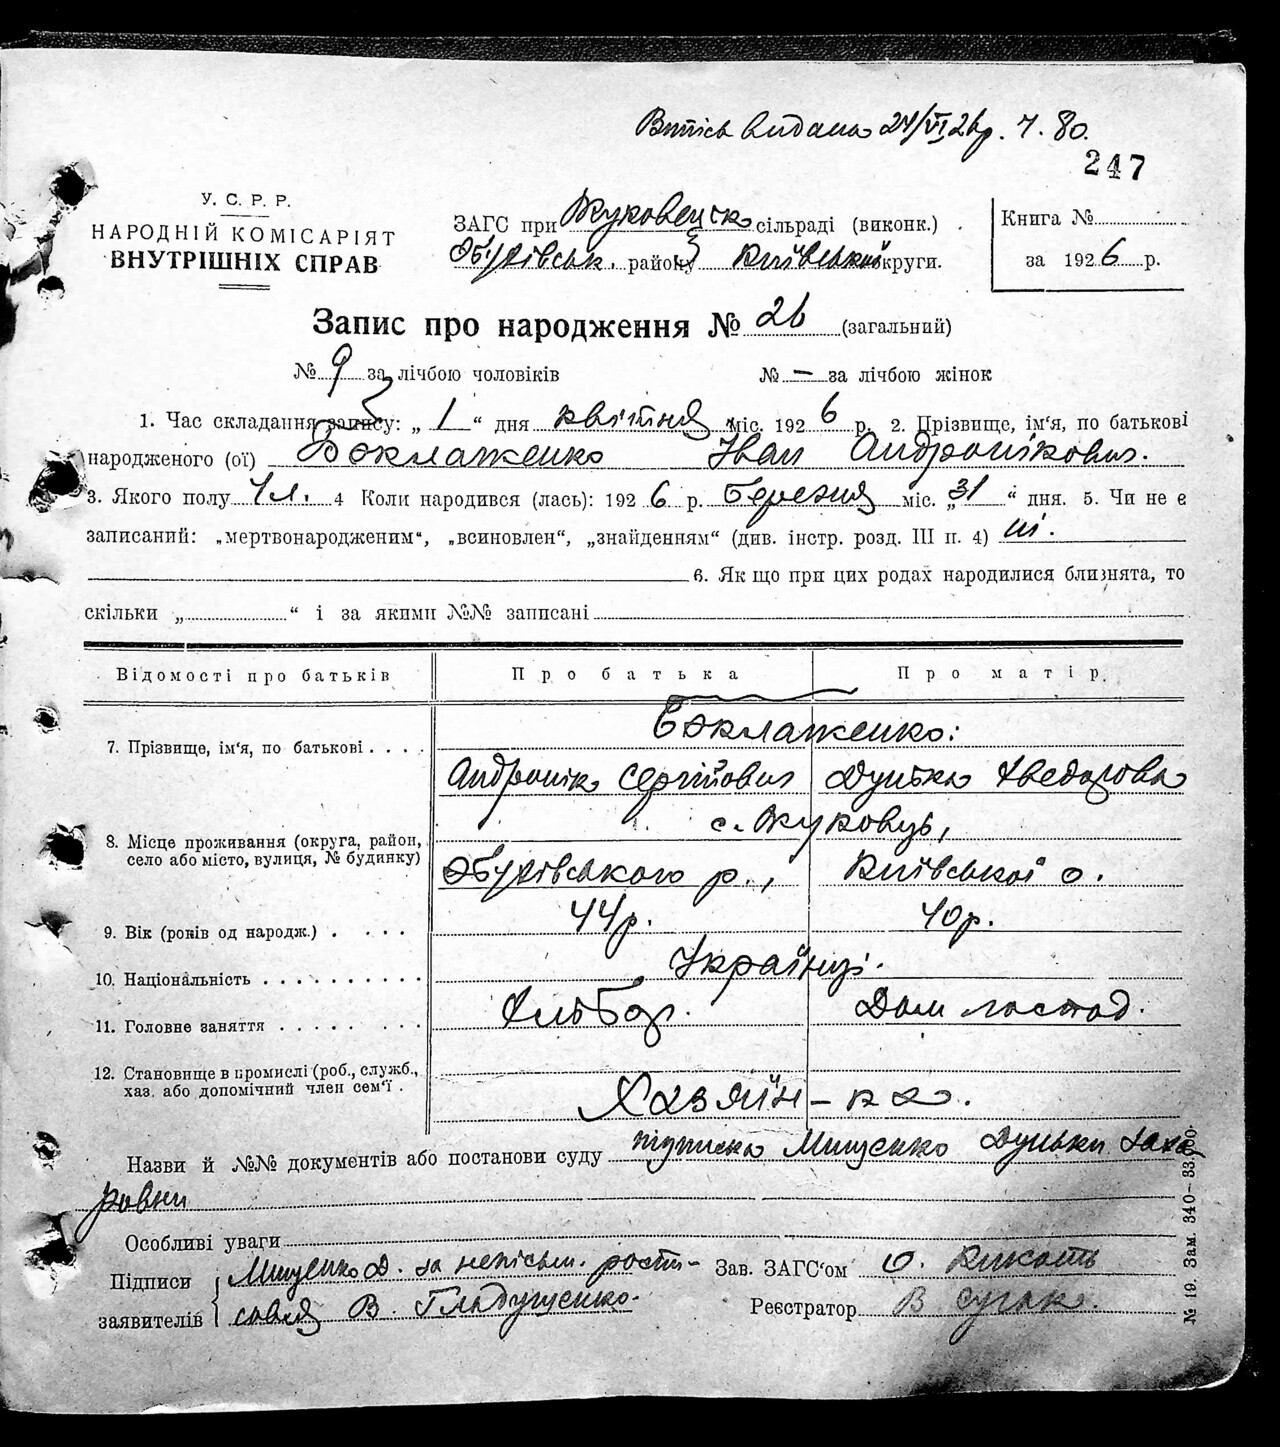 Витісь видана 24/VI 26р. Ч. 80.
247
У. С. Р. Р.
НАРОДНІЙ КОМІСАРІЯТ
ВНУТРІШНІХ СПРАВ
ЗАГС при Жуковецьк. сільраді (виконк.)
Обухівськ. району Київської округи.
Книга №
за 1926 р.
Запис про народження № 26 (загальний)
№ 9 за лічбою чоловіків № — за лічбою жінок
1. Час складання запису: „ 1 “ дня квітня міс. 1926 р. 2. Прізвище, ім'я, по батькові
народженого (ої) Боклаженко Іван Андронікович.
3. Якого полу Чл. 4 Коли народився (лась): 1926 р. березня міс. „31“ дня. 5. Чи не є
записаний: „мертвонародженим“, „всиновлен“, „знайденням“ (див. інстр. розд. III п. 4) ні.
6. Як що при цих родах народилися близнята, то
скільки „ “ і за якими №№ записані
Відомості про батьків Про батька Про матір
Боклаженко:
7. Прізвище, ім'я, по батькові . . . .
Андронік Сергійович Дунька Хведорова
с. Жуковці,
8. Місце проживання (округа, район,
село або місто, вулиця, № будинку)
Обухівського р., Київської о.
9. Вік (років од народж.) . . . . 44р. 40р.
10. Національність . . . . . . . . . . Українці.
11. Головне заняття . . . . . . . . . Хлібор. Дом господ.
12. Становище в промислі (роб., служб.,
хаз. або допомічний член сем'ї .
Хазяїн — ка.
Назви й №№ документів або постанови суду підписка Мищенко Дуньки Заха
ровни
Особливі уваги
Підписи Мищенко Д. за неписьм. рости-
заявителів В. Гладущенко.
Зав. ЗАГС'ом О.
Реєстратор В
№ 19. Зам. 340—33.000.